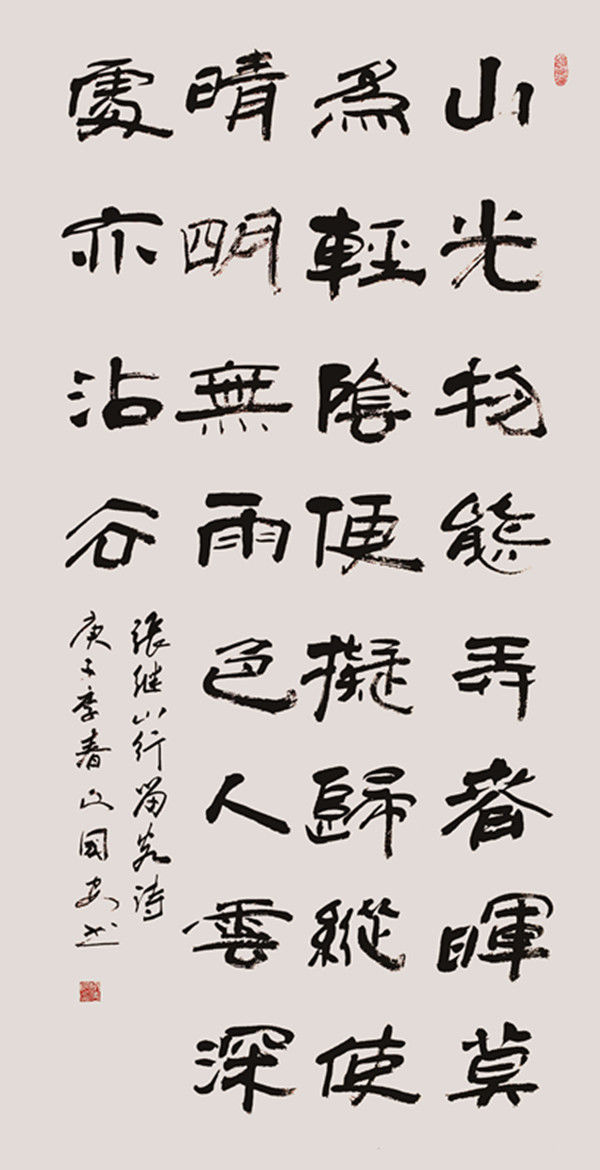 山光物態弄春暉莫
為輕陰便擬歸縱使
晴明無雨色入雲深
處亦沾衣
張継山行留客詩
庚子季春國安書